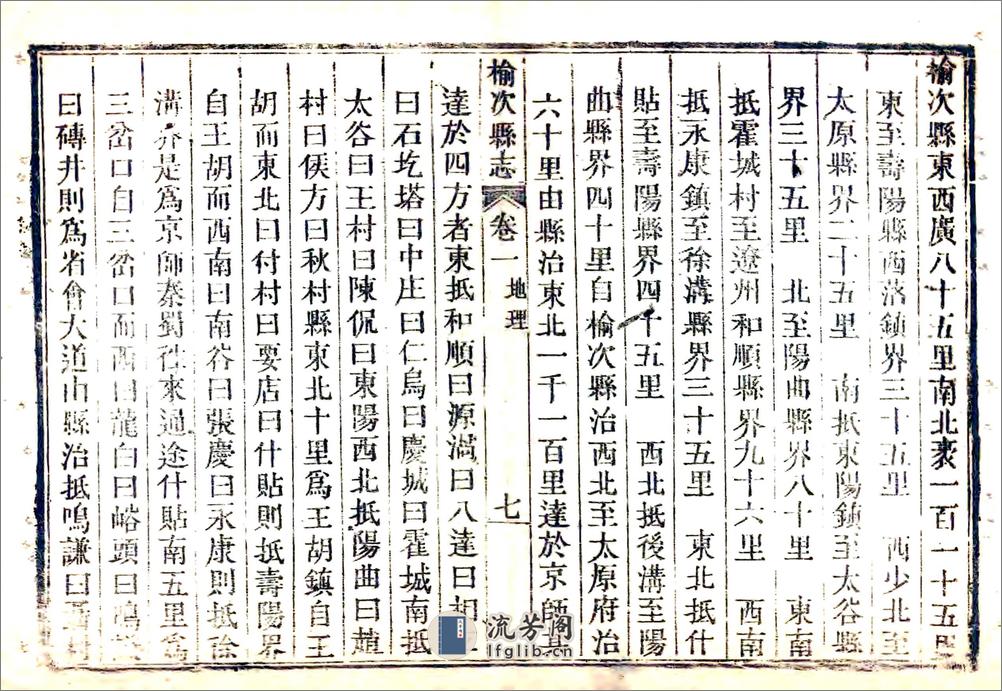 榆次縣東西廣八十五里南北袤一百一十五里
東至壽陽縣西落鎮界三十五里 西少北至
太原縣界二十五里 南抵東陽鎮至太谷縣
界三十五里 北至陽曲縣界八十里 東南
抵霍城村至遼州和順縣界九十六里 西南
抵永康鎮至徐溝縣界三十五里 東北抵什
貼至壽陽縣界四十五里 西北抵後溝至陽
曲縣界四十里自榆次縣治西北至太原府治
六十里由縣治東北一千一百里達於京師其
榆次縣志 卷一 地理 七
達於四方者東抵和順曰源渦曰八達曰相
曰石圪塔曰中庄曰仁烏曰慶城曰霍城南抵
太谷曰王村曰陳侃曰東陽西北抵陽曲曰趙
村曰侯方曰秋村縣東北十里為王胡鎮自王
胡而東北曰付村曰要店曰什貼則抵壽陽界
自王胡而西南曰南谷曰張慶曰永康則抵徐
溝界是為京師秦蜀往來通途什貼南五里為
三岔口自三岔口而西曰龍白曰峪頭曰鳴謙
曰磚井則為省會大道由縣治抵鳴謙曰聶村
流芳閣
lfglib.cn